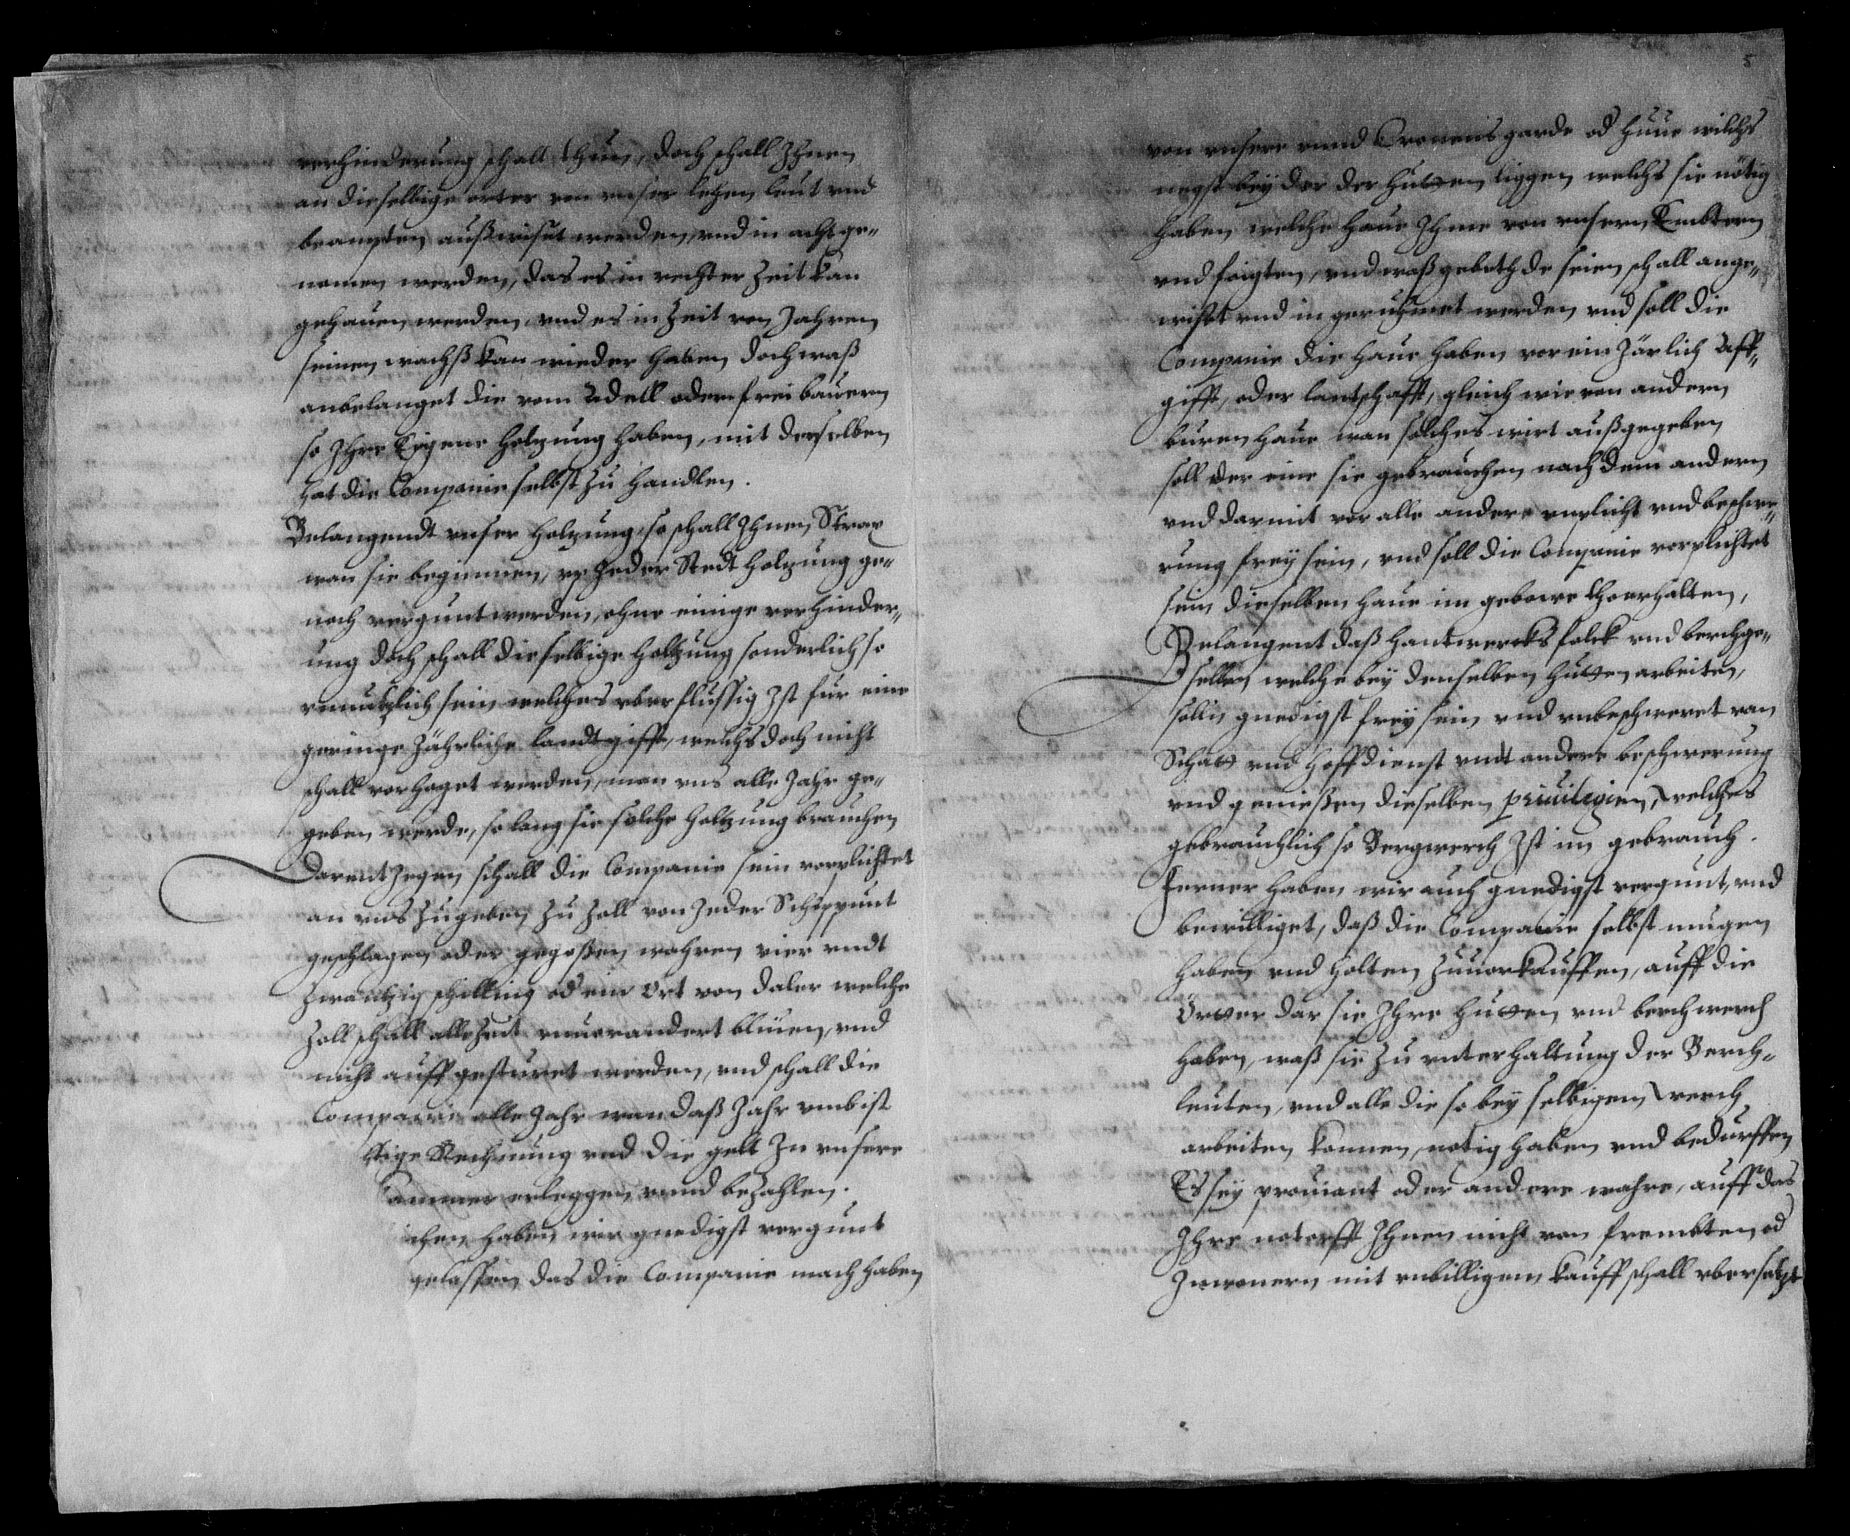 verhinderung schall thun, doch schall Ihnen
an dieselbige orter von unser lehen leut vnd
beampten außwiset werden, vnd in acht ge-
nomen werden, das es in rechter Zeit kan
gehauen werden, vnd es in Zeit von Jahren
seinen wachß kan wieder haben, doch waß
anbelanget die vom Adell oder frei bauern
so Ihre Eigene holzung haben, mit derselben
hat die Companie selbst zu handlen.
Belangendt vnser holzung, so schall Ihnen Strax
wan sie beginnen, vp Jeder Stedt holzung ge-
noch vergunt werden, ohne einige verhinder-
ung doch schall dieselbige holtzung sonderlich so
vnnutzlich sein, welches vberflussig Ist fur eine
geringe Jährliche landtgifft, welchs doch nicht
schall vorhoget werden, man vns alle Jahr ge-
geben werde, so lang sie solche holtzung brauchen
Darentzegen schall die Companie sein vorplichtet
an vns zugeben zu Zoll von Jeder Schippunt
geschlagen oder gegoßen wahren vier vndt
zwantzig schilling od ein Ort von daler welche
Zoll schall alle Zeit vnuorandert bliuen, vnd
nicht auffgesturet werden, vnd schall die
Companie alle Jahr wan daß Jahr vmb ist
Rechnung vnd die gelt Zu vnsere
erleggen vnnd bezahlen.
haben wir gnedigst vergunt
gelassen das die Companie mach haben
5
von vnsere vnnd Croneus garde od huue wilchs
negst bey der der hutten liggen welchs sie nötig
haben, welche haue Ihme von vnsern Embtern
vnd foigten, vnd waß gebethde seien schall ange-
wist vnd in geruhmet werden vnd soll die
Companie die haue haben vor ein Järlich Aff-
gifft, oder lantschafft, gleich wie von andern
buren haue wan solches wirt außgegeben
soll der eine sie gebrauchen nach dem andern
vnd darmit vor alle andere vnplicht vnd beschwe-
rung frey sein, vnd soll die Companie vorplichtet
sein dieselben haue im gebowe tho erhalten,
Belangent daß hantwercks folck vnd berchge-
sellen welche bey denselben hutten arbeiten,
sollen gnedigst frey sein vnd vnbeschweret van
Schatt vnd hoffdienst vndt andere beschwerung
vnd genießen dieselben priuilegien, welches
gebrauchlich so Bergwerch Ist im gebrauch.
Ferner haben wir auch gnedigst vergunt, vnd
bewilliget, daß die Companie selbst mugen
haben vnd holten zuuorkauffen, auff die
Örtter dar sie Ihre hutten vnd berchwerch
haben, waß sie zu vnterhaltung der Berch-
leuten, vnd alle die so bey selbigen werch
arbeiten konnen, notig haben vnd bedurffen
Es sey prouiant oder andere wahre, auff das
Ihre notorfft Ihnen nicht von frembten od
Inwonern mit vnbilligem kauff schall vbersetzt